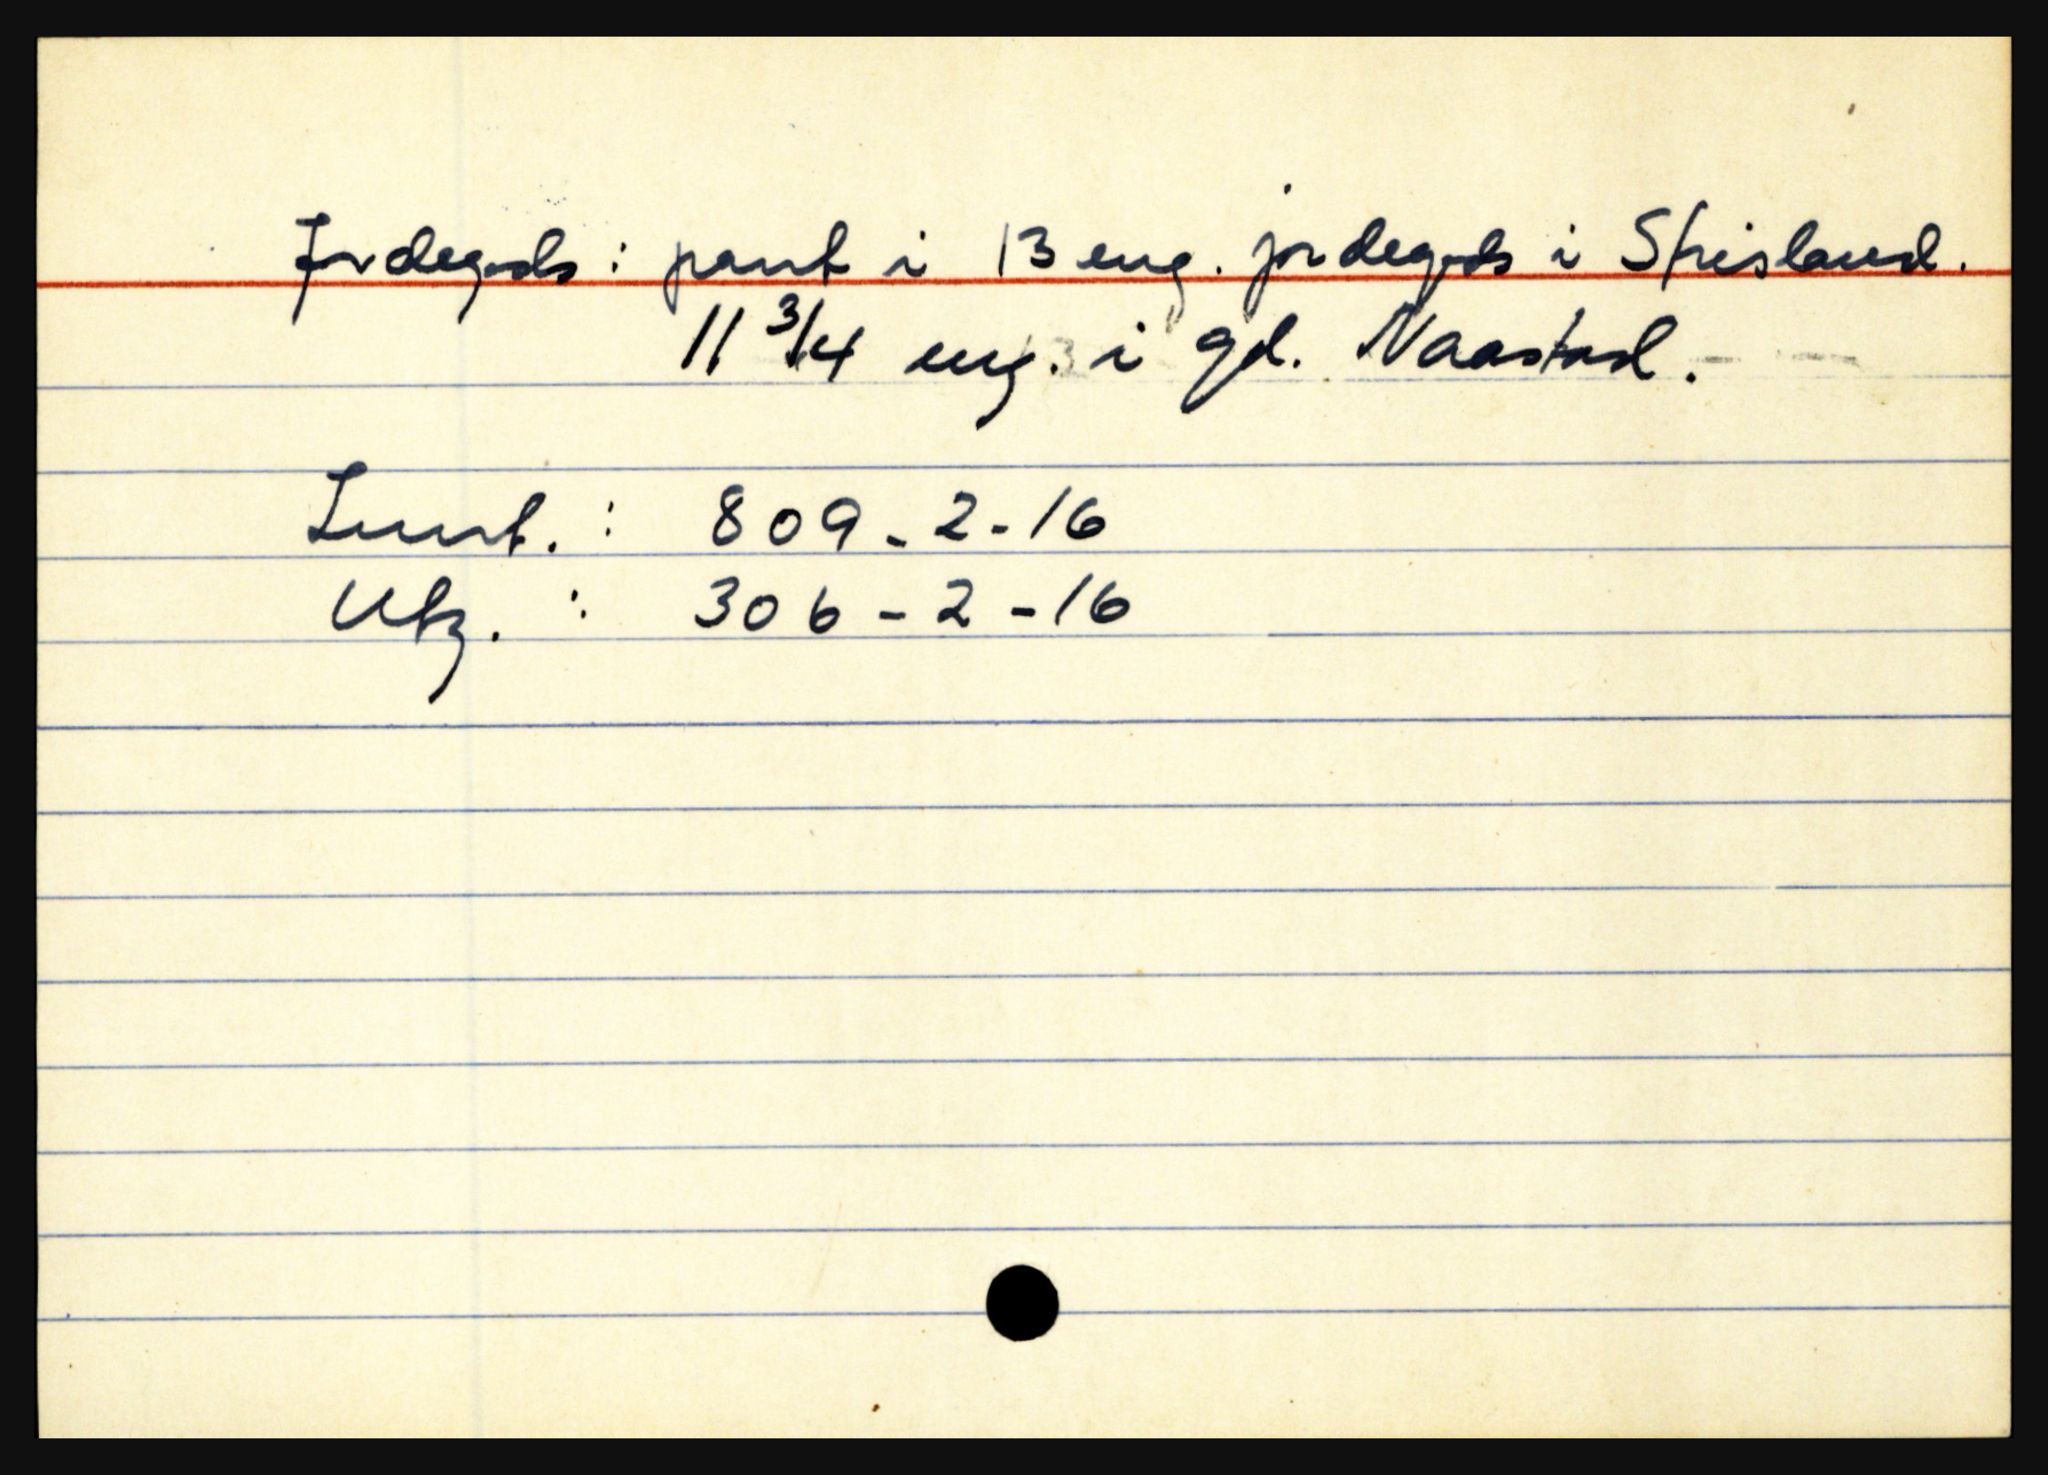 Jordegods: pant i 13 eng. jordegods i Strisland.
11 3/4 eng. i gd. Naastad.
809-2-16
306-2-16